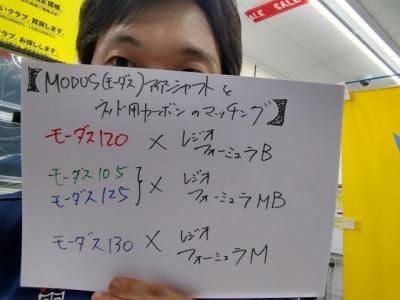 いクラブ、買戻します。
クラブ、お探しします。
SALE SALE
【MODUS(モーダス)アイアンシャフトと
ウッド用カーボンのマッチング】
モーダス120 × レジオ
フォーミュラB
モーダス105
モーダス125 } × レジオ
フォーミュラMB
モーダス130 × レジオ
フォーミュラM